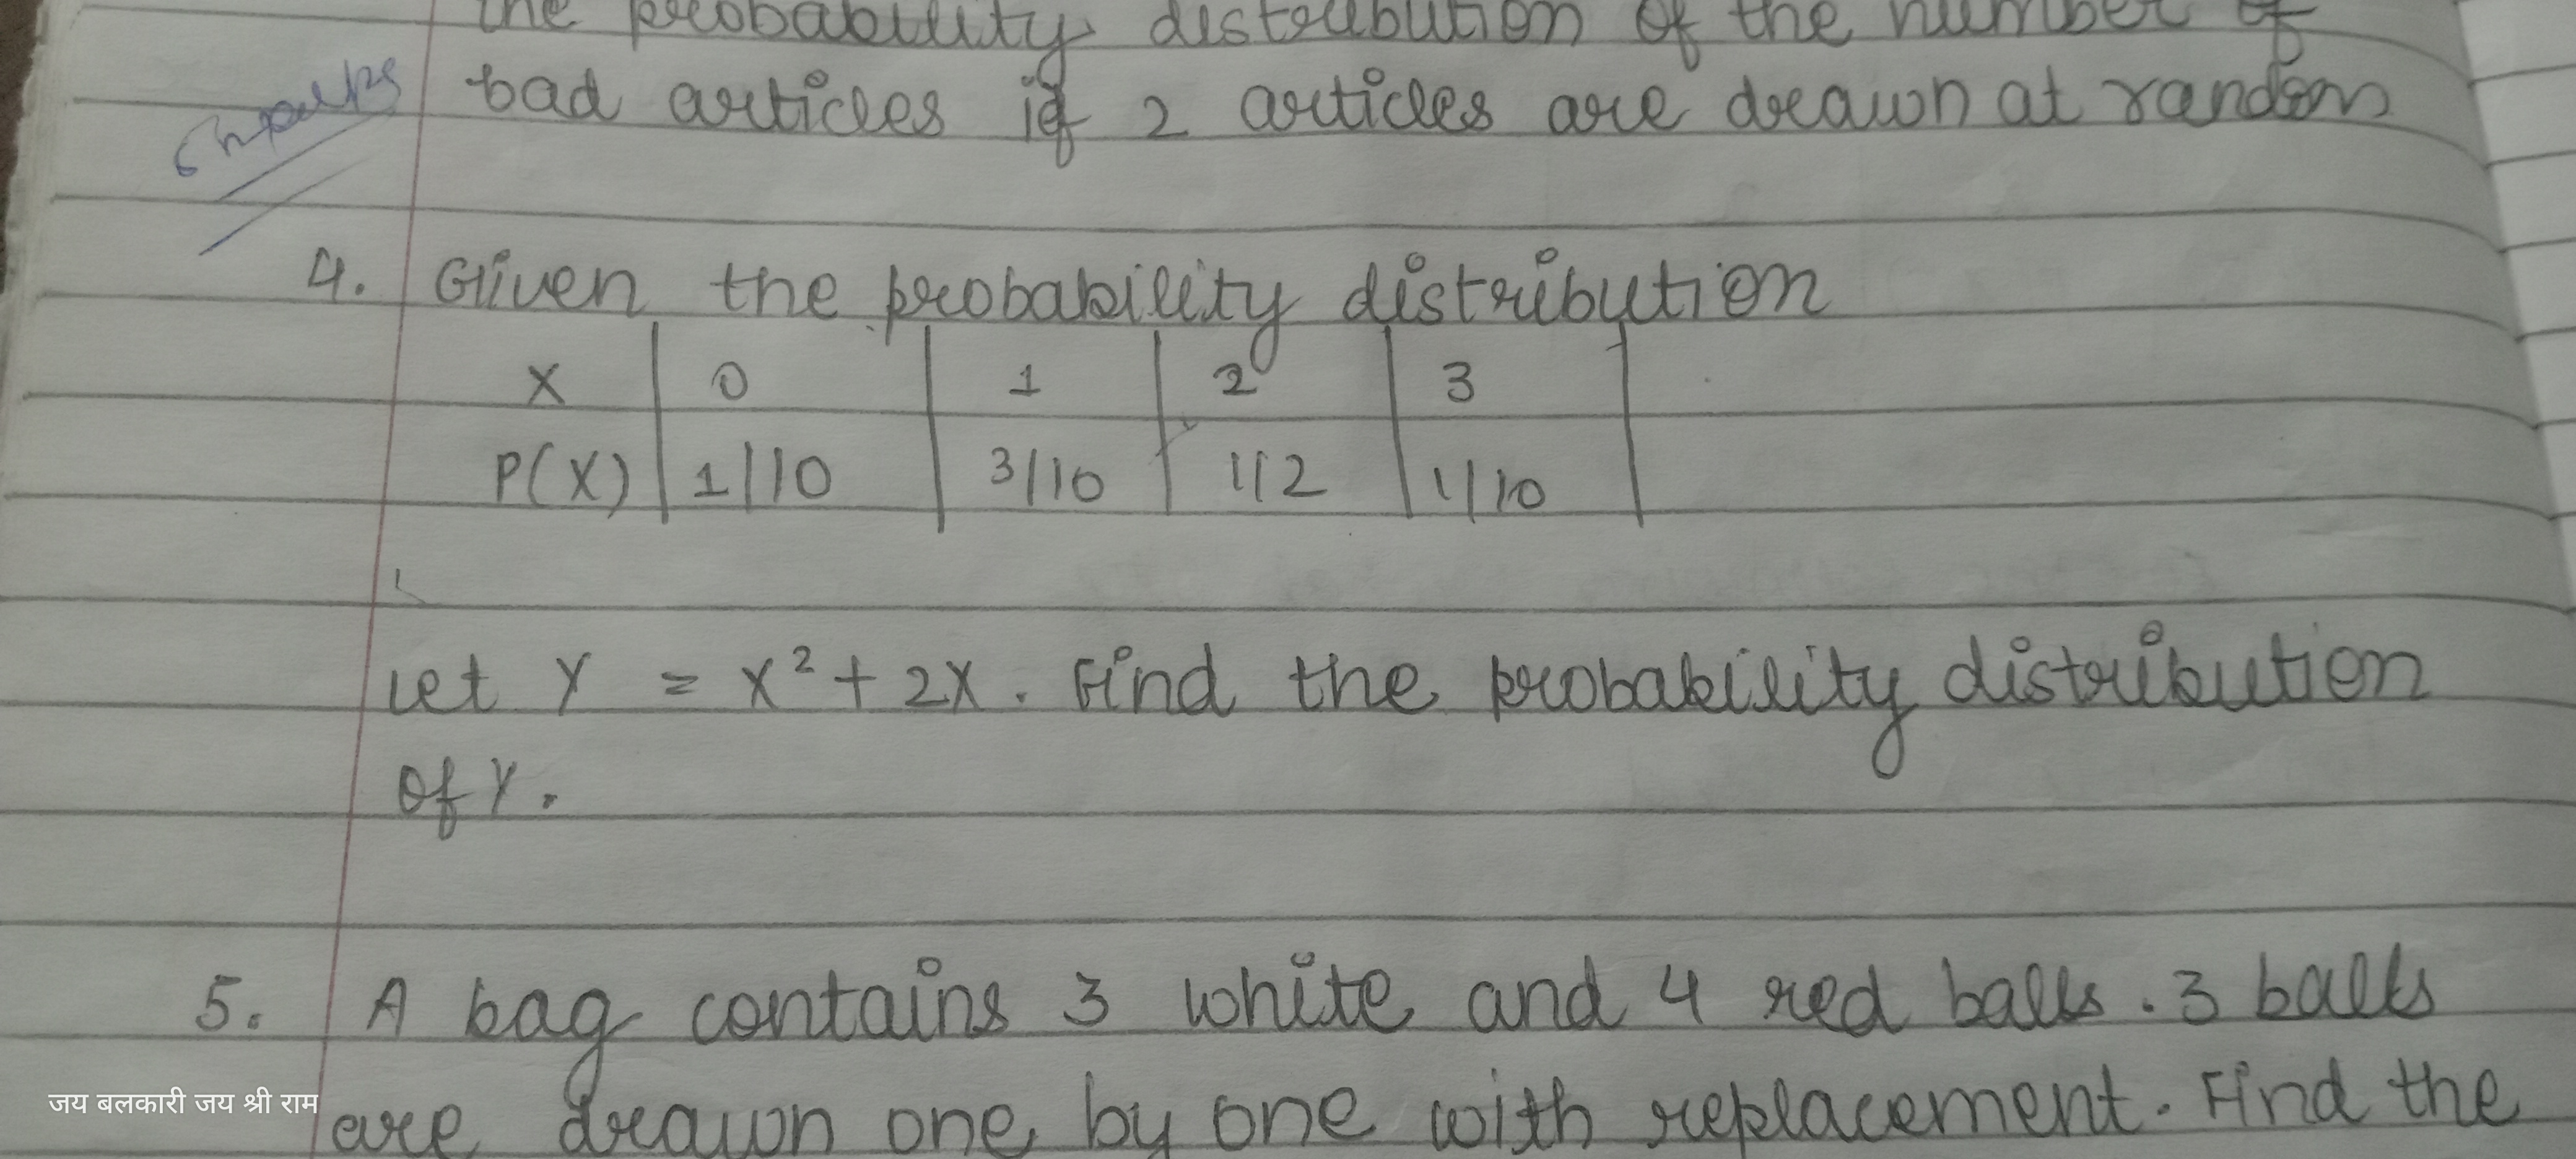 the probability distribution of the number of
bad articles if 2 articles are drawn at random
4. Given the probability distribution
X | 0 | 1 | 2 | 3 |
P(X) | 1/10 | 3/10 | 1/2 | 1/10 |
Let Y = X² + 2X. Find the probability distribution
of Y.
5. A bag contains 3 white and 4 red balls. 3 balls
are drawn one by one with replacement. Find the
जय बलकारी जय श्री राम